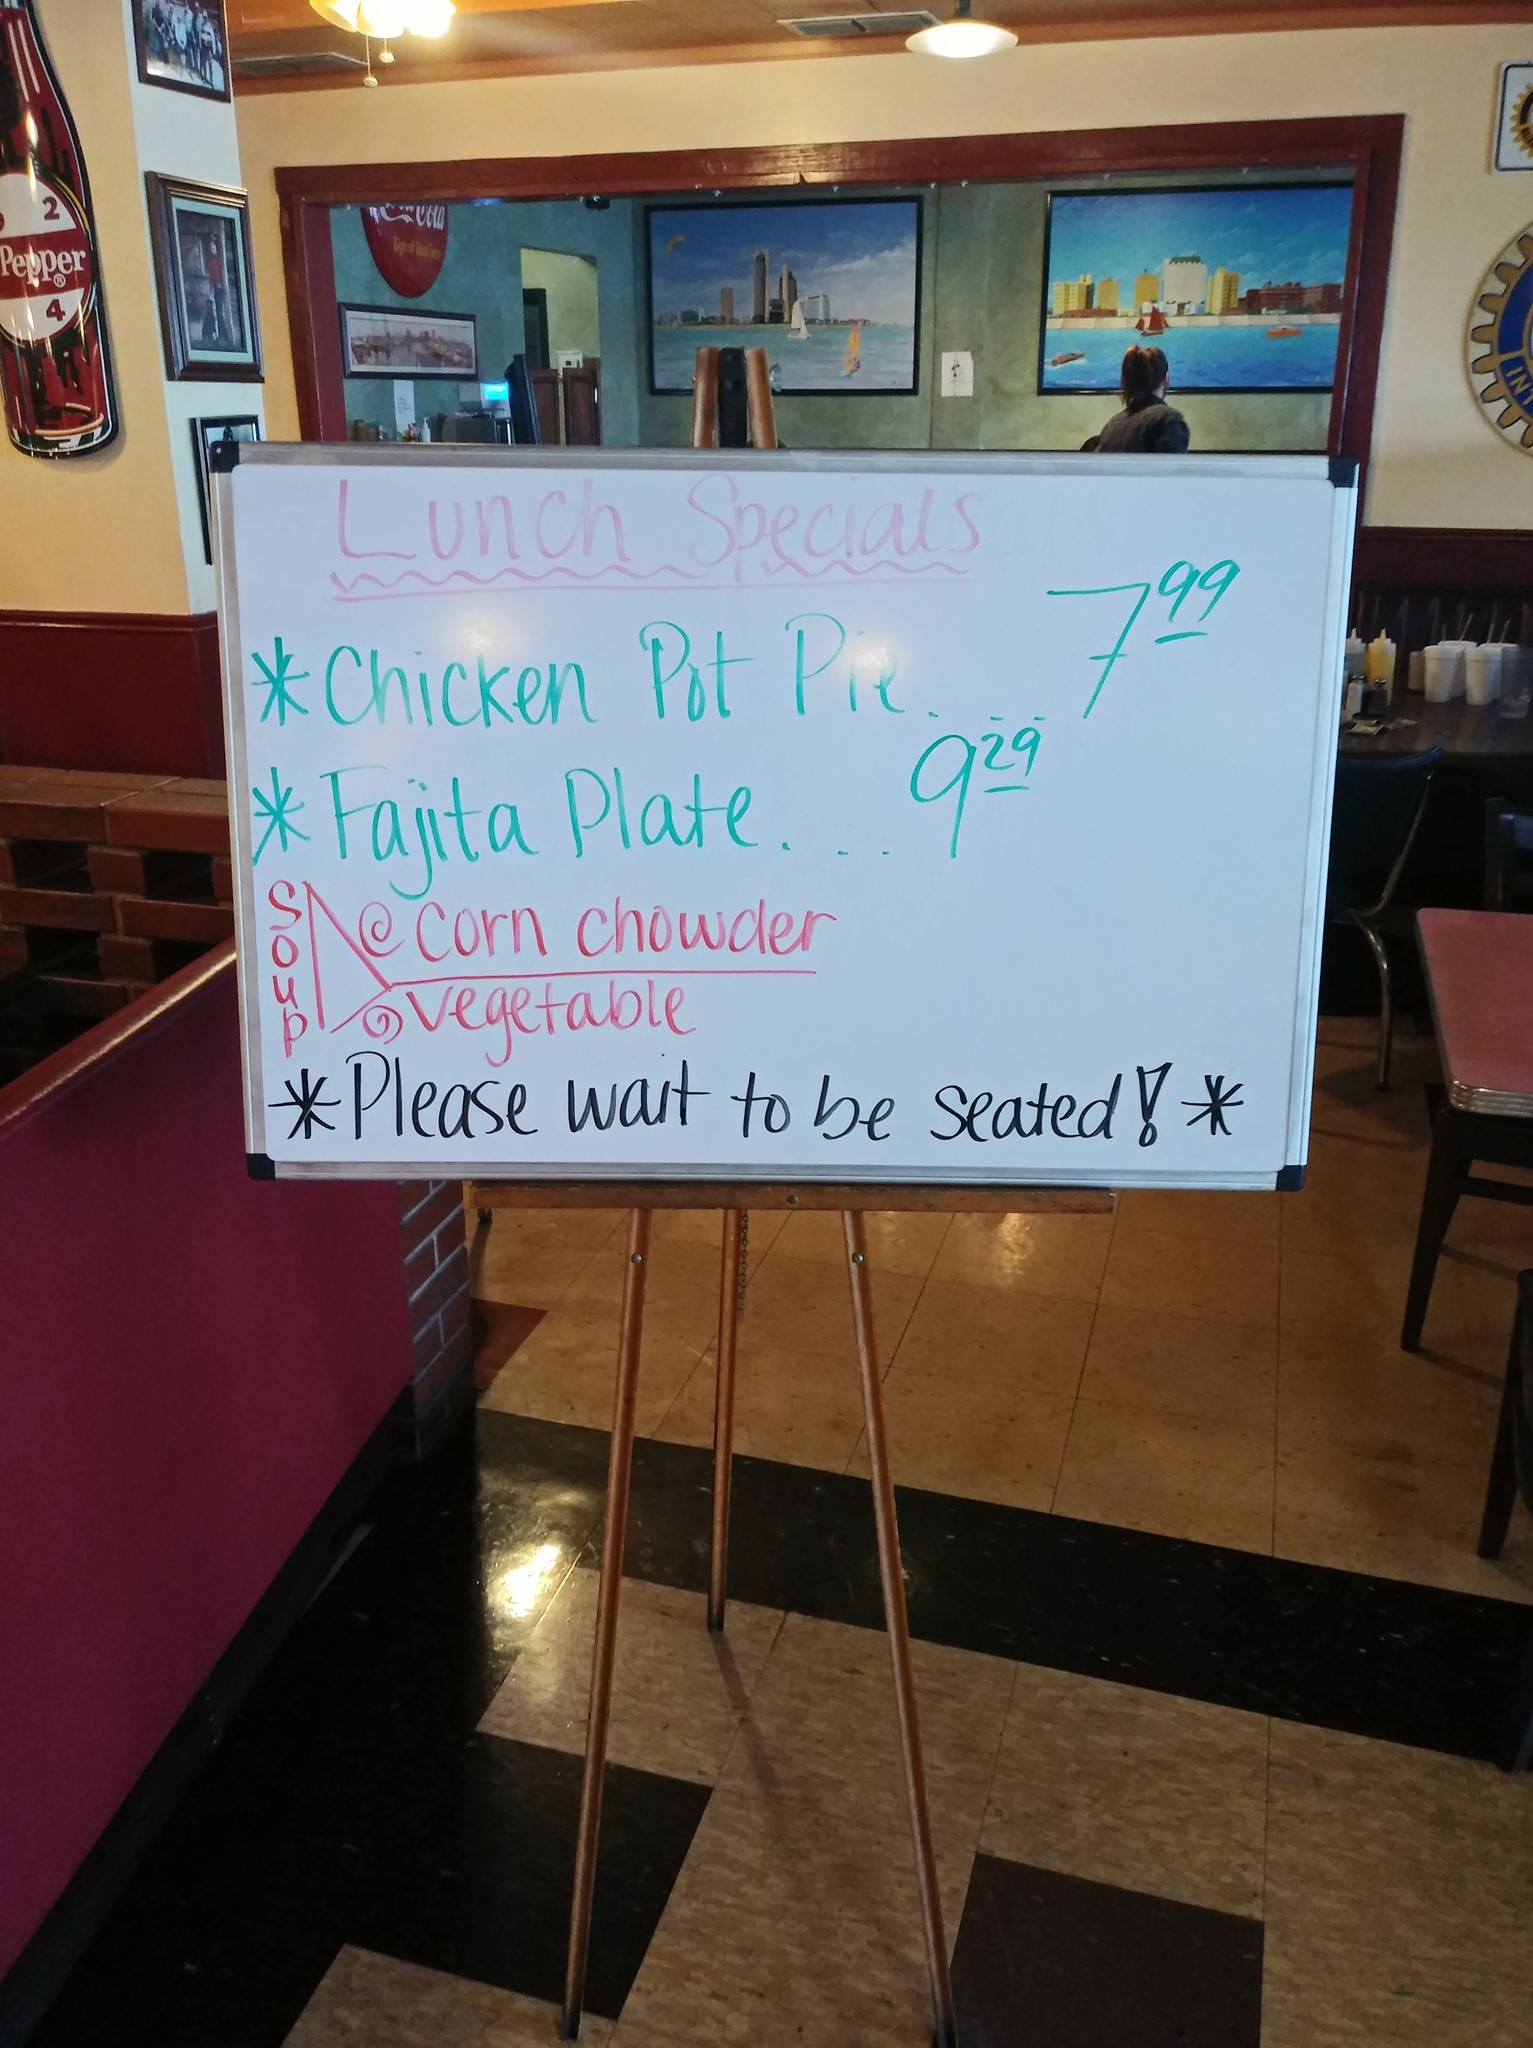 Coca-Cola
Sign of Good Taste
2
Pepper®
4
Lunch Specials
*Chicken Pot Pie. ... 7 99
*Fajita Plate. . . . 9 29
Soup
@ corn chowder
@ vegetable
*Please wait to be seated! *